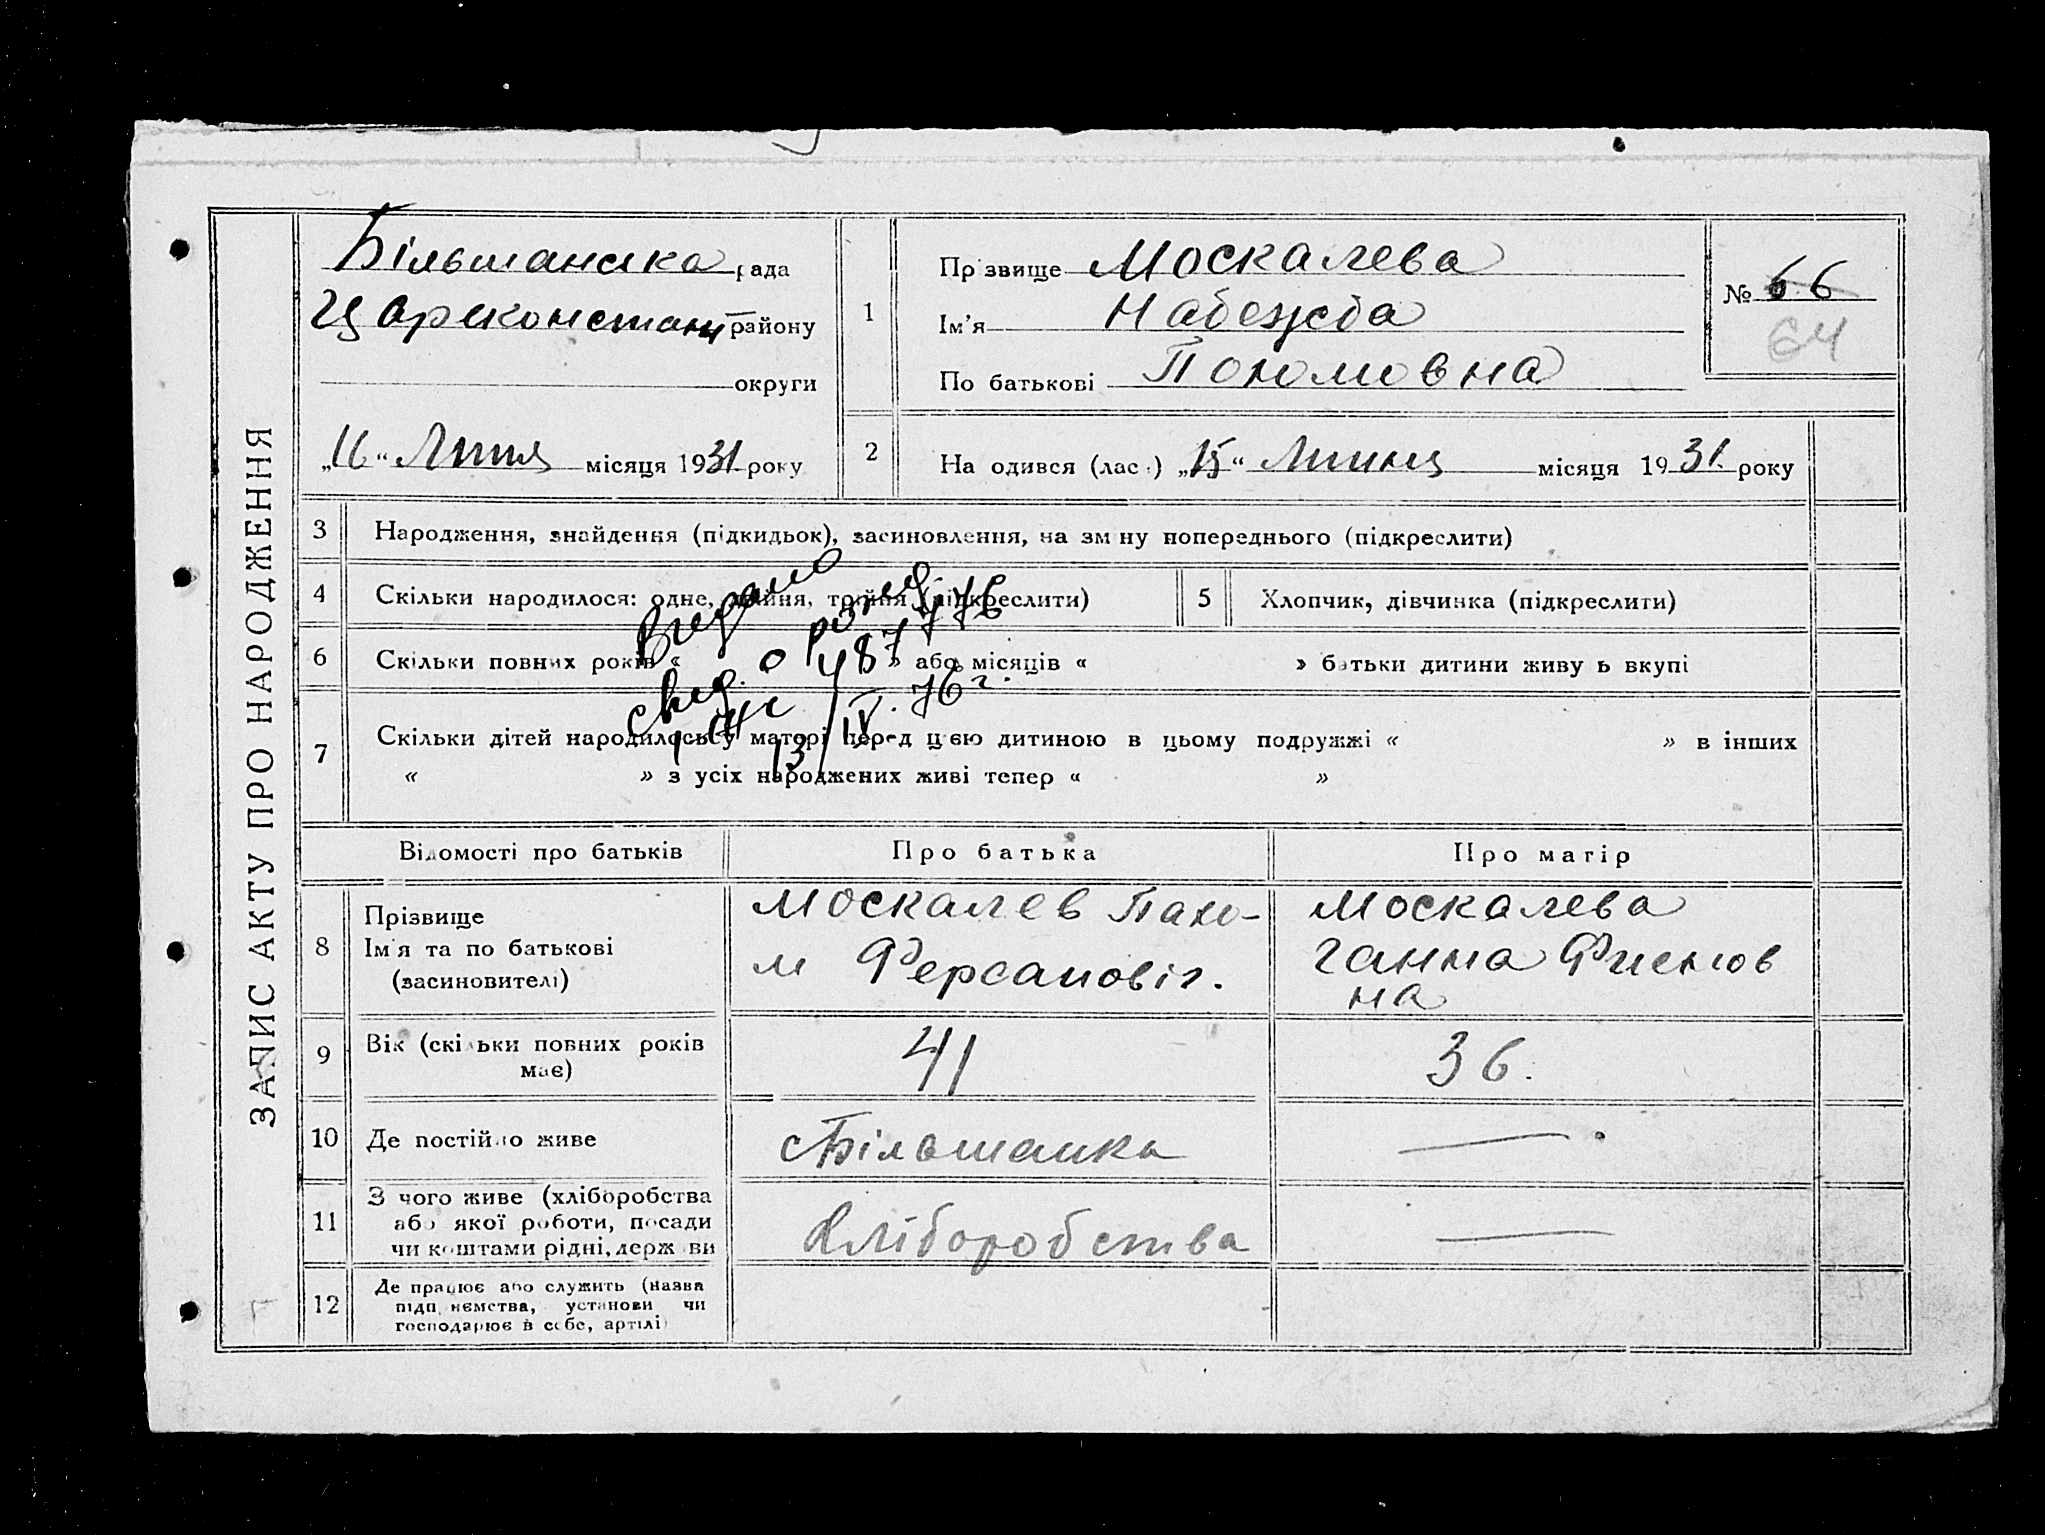 ЗАПИС АКТУ ПРО НАРОДЖЕННЯ
Більшанська рада
Царекконстант району
округи
„16“ Липня місяця 1931 року
1
Прізвище Москалева
Ім'я Надежда
По батькові Похомовна
№ 66
64
2
На одився (лас ) „15“ Липня місяця 1931. року
3 Народження, знайдення (підкидьок), засиновлення, на зм ну попереднього (підкреслити)
4 Скільки народилося: одне, двійня, трійня (підкреслити) 5 Хлопчик, дівчинка (підкреслити)
6 Скільки повних років « » або місяців « » батьки дитини живу ь вкупі
7 Скільки дітей народилось у матері перед цією дитиною в цьому подружжі « » в інших
« » з усіх народжених живі тепер « »
Видано
свид. о рожд.
487776
13/IV.76 г.
Відомості про батьків Про батька Про матір
8 Прізвище
Ім'я та по батькові
(засиновителі)
Москалев Пахо-
м Ферсанович.
Москалева
Ганна
на
9 Вік (скільки повних років
має)
41 36.
10 Де постійно живе
с Більшанка —
11 З чого живе (хліборобства
або якої роботи, посади
чи коштами рідні, держ ви
Хліборобства —
12 Де працює або служить (назва
підп иємства, установи чи
господарює в себе, артілі)